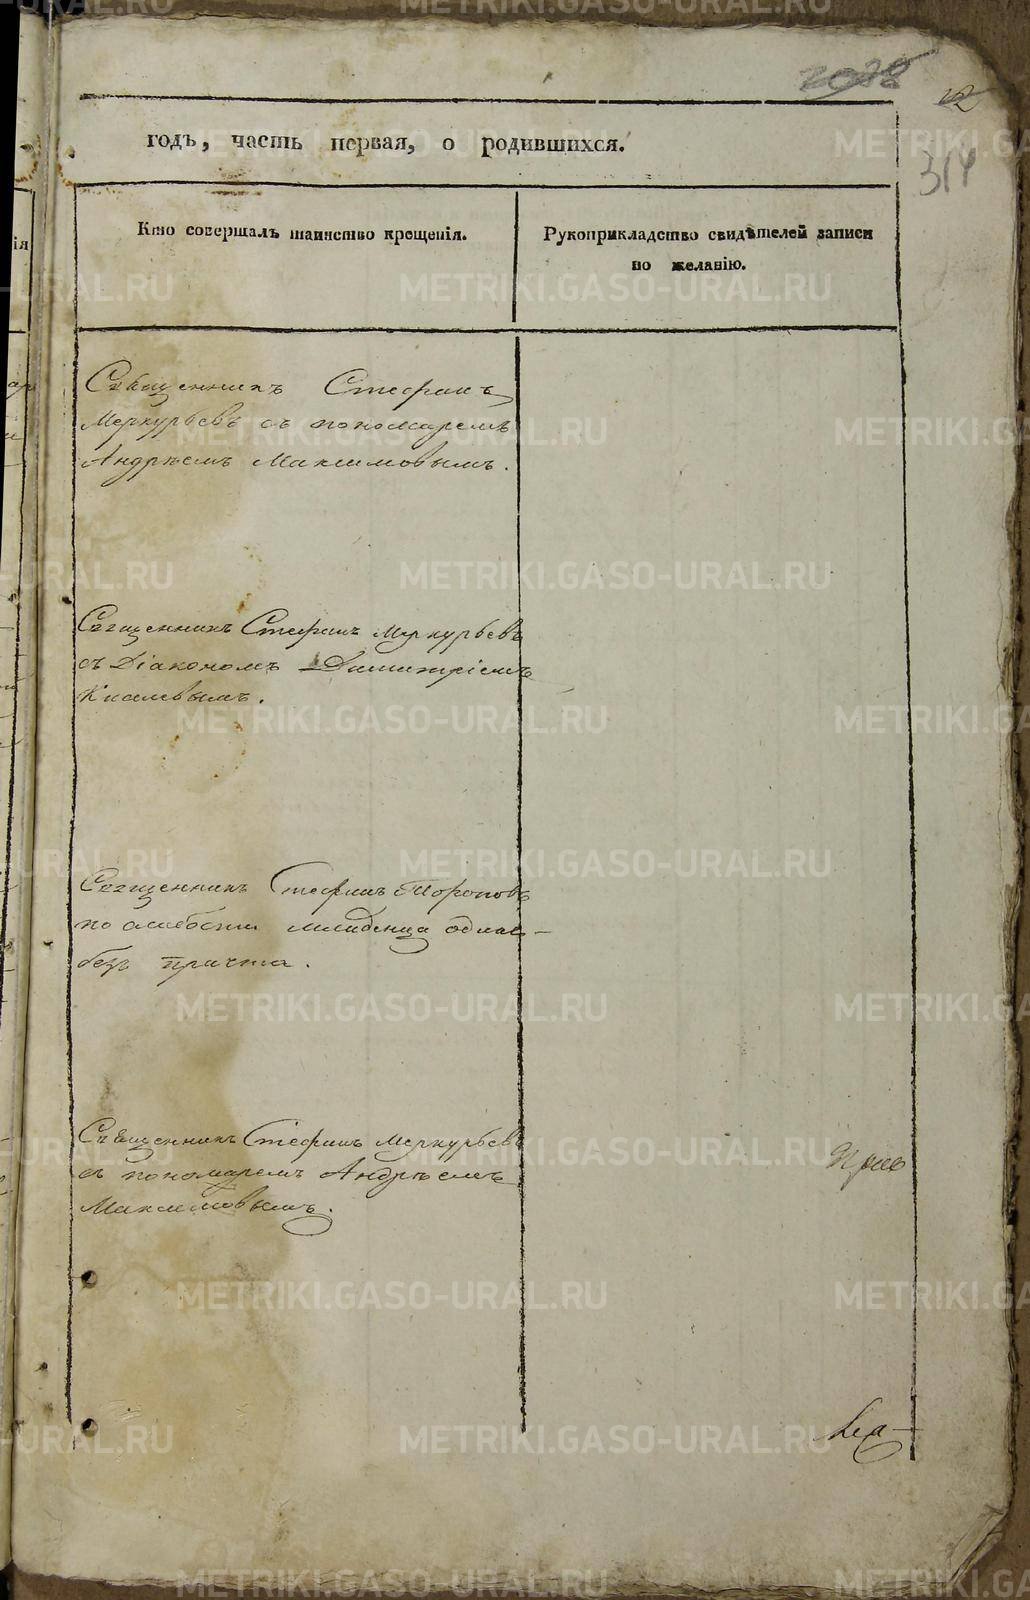 314
годъ, часть первая, о родившихся.
Кто совершалъ таинство крещенія.
Рукоприкладство свидѣтелей записи
по желанію.
Священникъ Стефанъ
Меркурьевъ съ пономаремъ
Андрѣемъ Максимовымъ.
Священникъ Стефанъ Меркурьевъ
съ Діакономъ Димитріемъ
Киселевымъ.
Священникъ Стефанъ Тороповъ
по слабости младенца одинъ
безъ причта.
Священникъ Стефанъ Меркурьевъ
съ пономаремъ Андрѣемъ
Максимовымъ.
METRIKI.GASO-URAL.RU